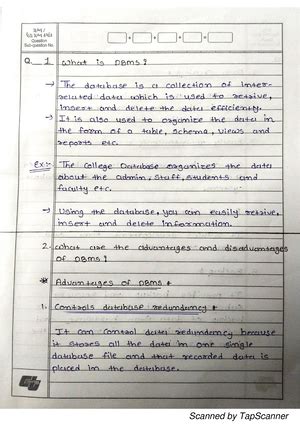 Question
Sub-question No.
Q. 1 What is DBMS?
→ The database is a collection of inter-
related data which is used to retrive,
insert and delete the data efficiently.
→ It is also used to organize the data in
the form of a table, schema, views and
reports etc.
ex:- The College Database organizes the data
about the admin, staff, students and
faculty etc.
→ Using the database, you can easily retrive,
insert and delete information.
2. What are the advantages and disadvantages
of DBMS?
* Advantages of DBMS
1. Controls database redundancy
It can control data redundancy because
it stores all the data in one single
database file and that recorded data is
placed in the database.
Scanned by TapScanner